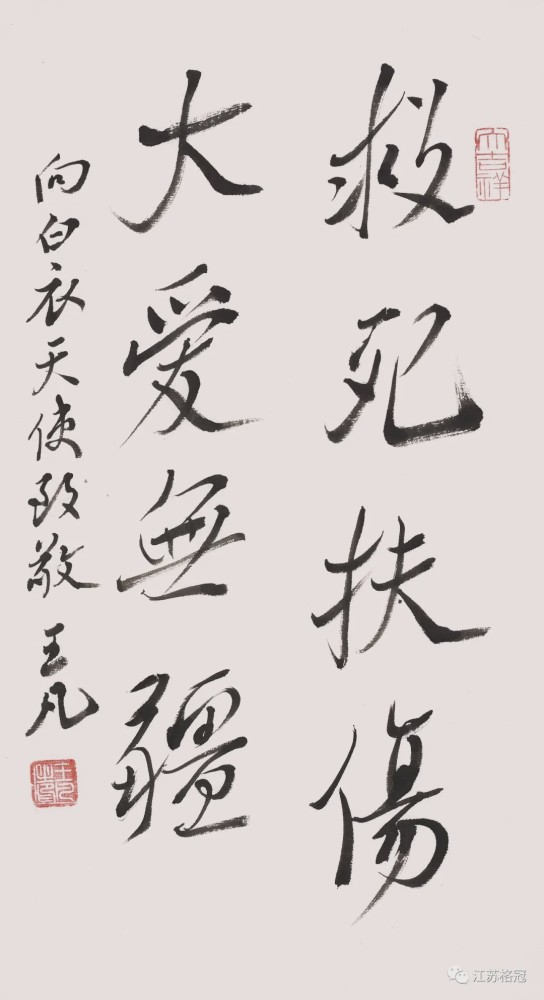 救死扶傷
大愛無疆
向白衣天使致敬 王凡
大吉祥
江苏格冠